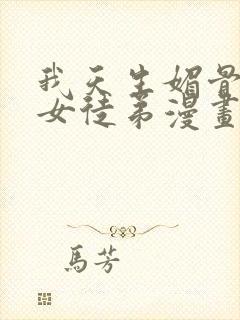 我天生媚骨
女徒弟漫畫
馬芳